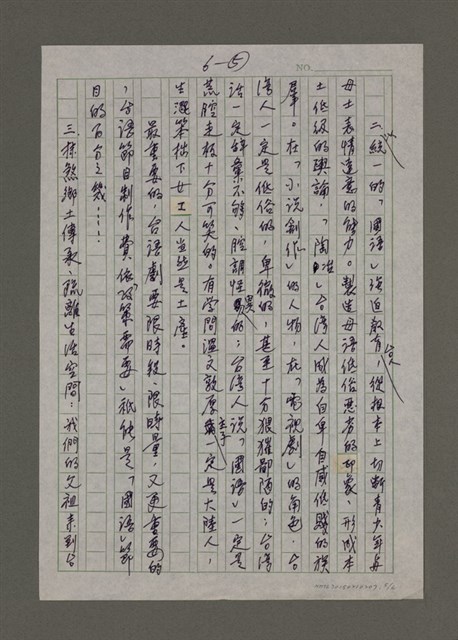 6—⑤
NO.
二、統一的「國語」強迫教育，從根本上切斷青少年與
母土表情達意的能力。製造母語低俗惡劣的印象，形成本
土低級的輿論，「陶冶」台灣人成為自卑自感低賤的族
羣。在「小說創作」的人物，在「電視劇」的角色，台
灣人一定是低俗的，卑微的，甚至十分猥獕鄙陋的；台灣
話一定辭彙不夠、腔調怪異的；台灣人說「國語」一定是
荒腔走板十分可笑的。有學問溫文敦厚一定是大陸人，
生混笨拙下女工人當然是土產。
最重要的，台語劇要限時段、限時量，又更重要的
，台語節目製作費，依「政策需要」祇能是「國語」節
目的百分之幾……
三、抹煞鄉土傳承，疏離生活空間：我們的父祖來到台